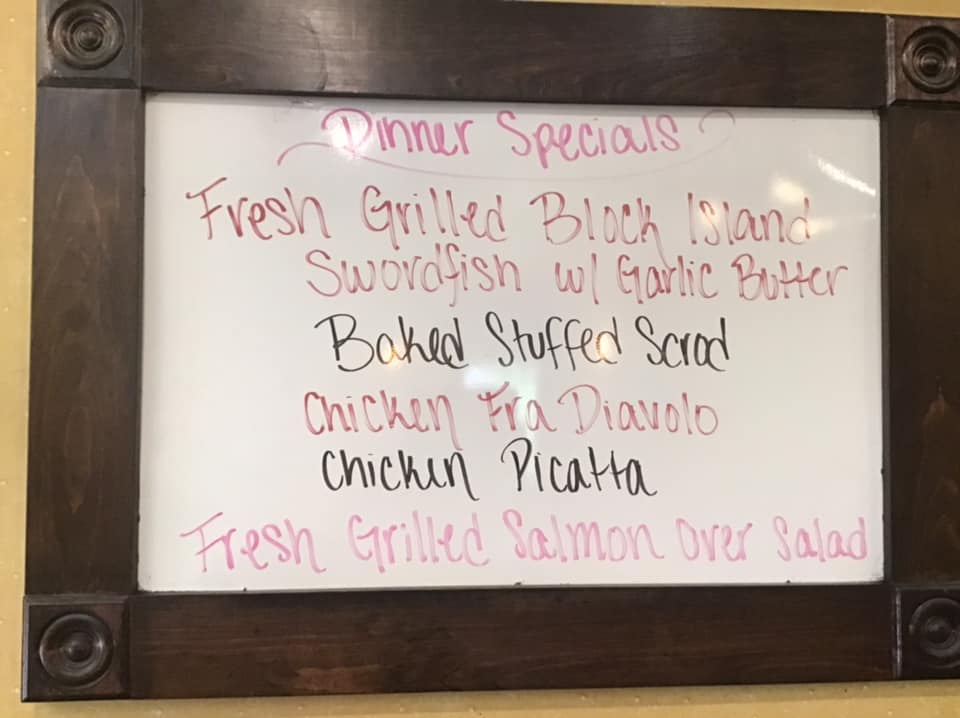 Dinner Specials
Fresh Grilled Block Island
Swordfish w/ Garlic Butter
Baked Stuffed Scrod
Chicken Fra Diavolo
Chicken Picatta
Fresh Grilled Salmon over Salad